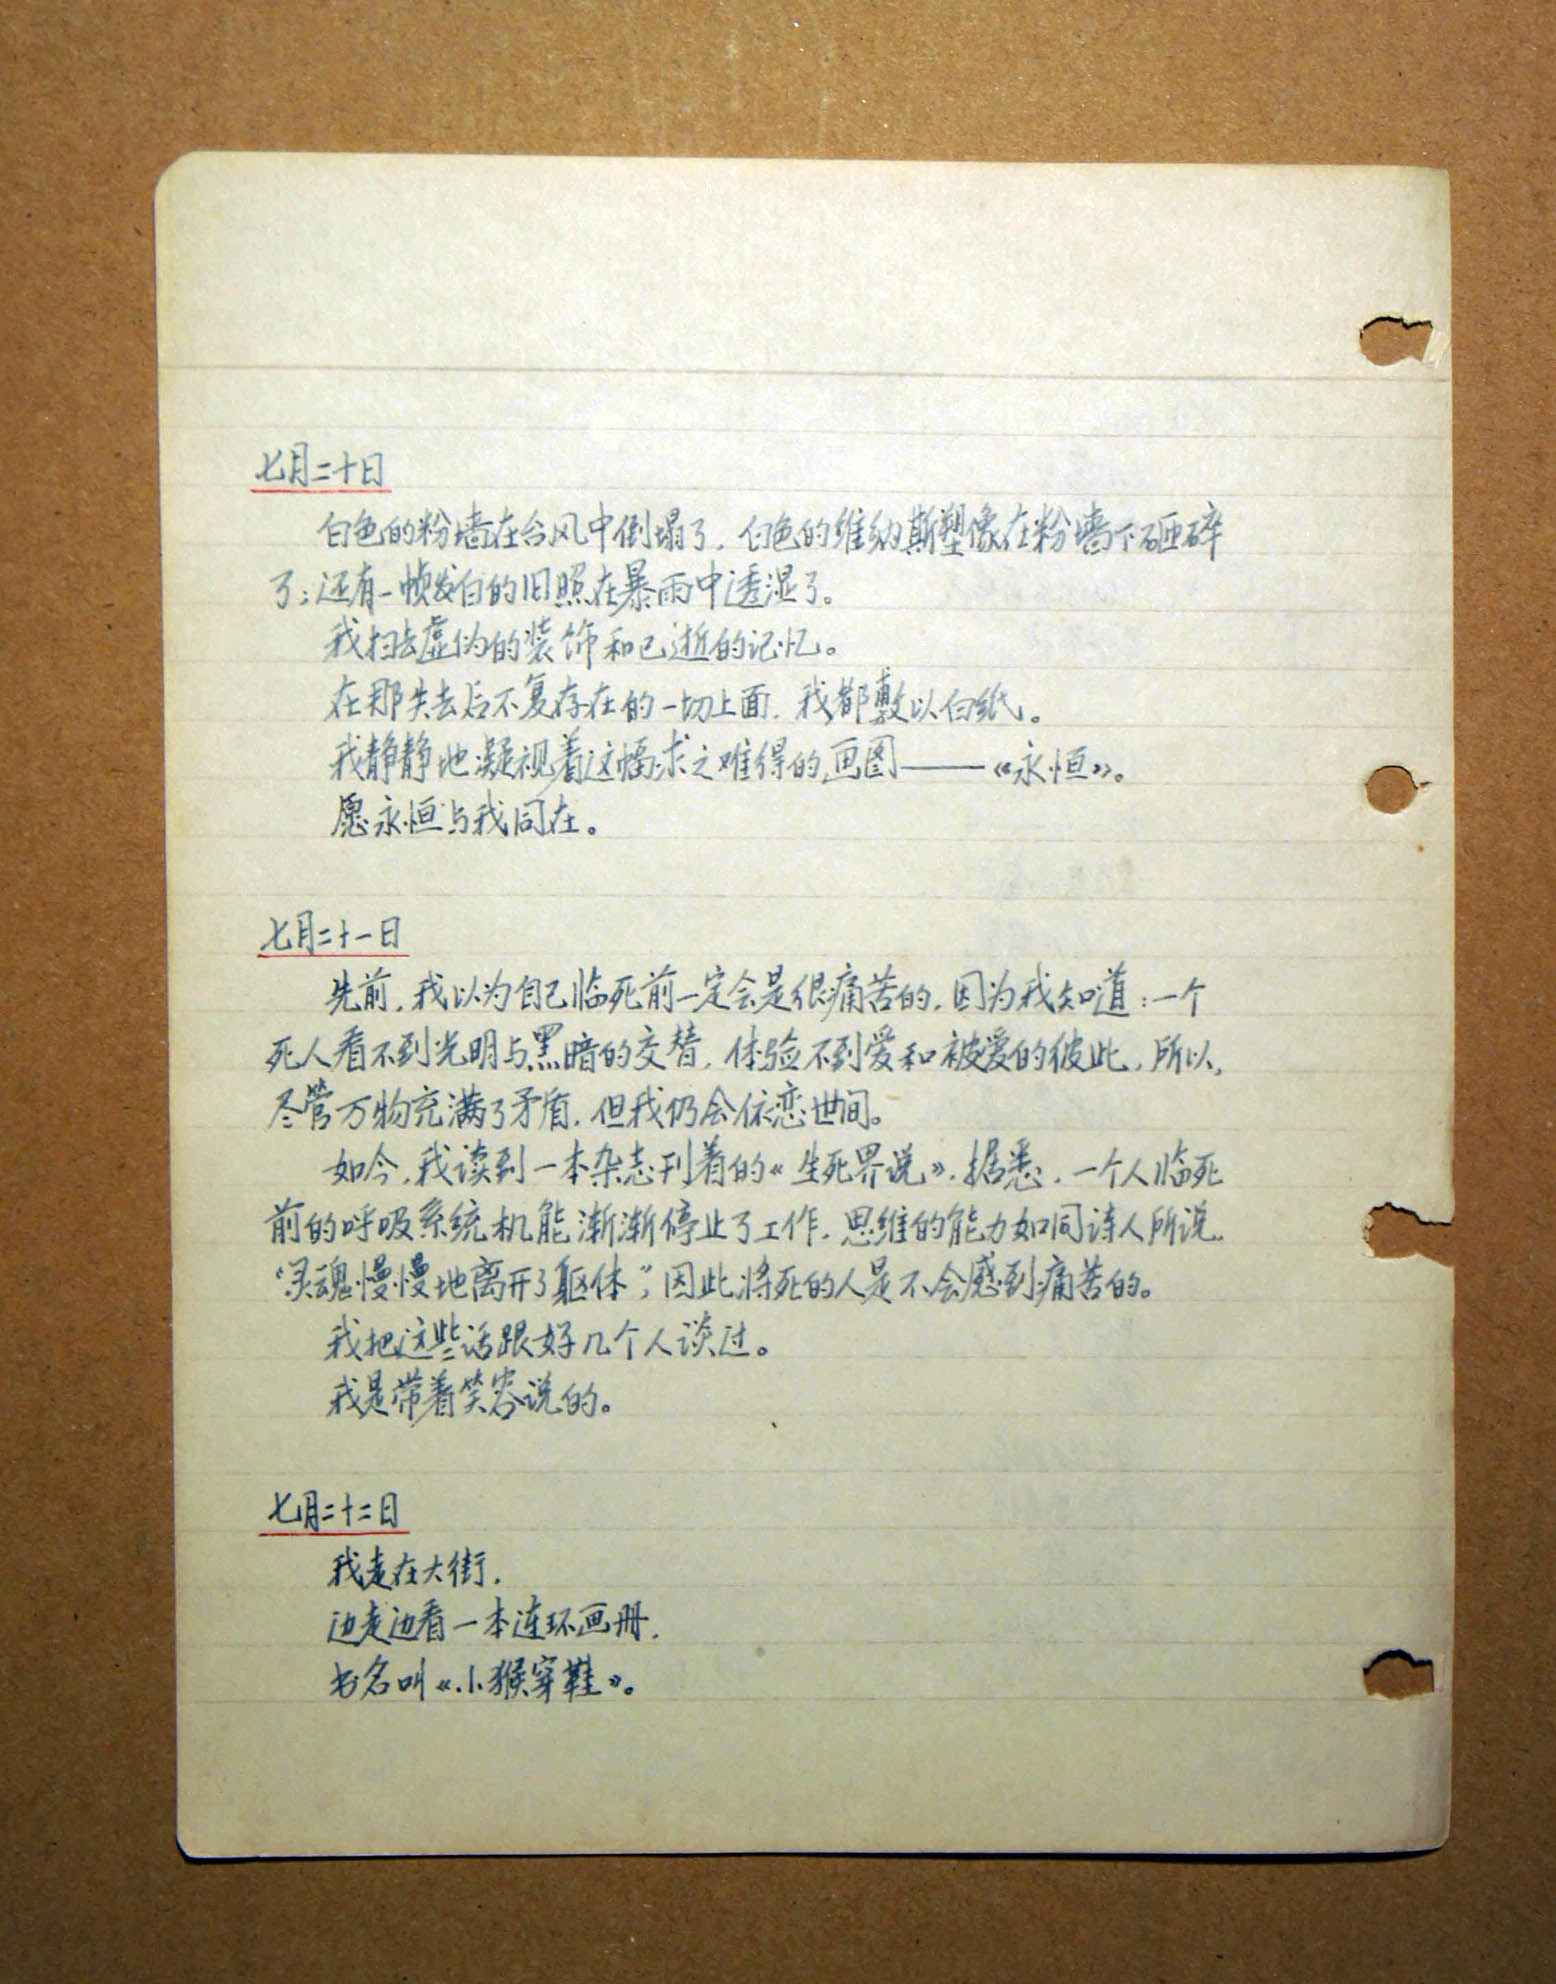 七月二十日
白色的粉墙在台风中倒塌了，白色的维纳斯塑像在粉墙下砸碎
了；还有一帧发白的旧照在暴雨中透湿了。
我扫去虚伪的装饰和已逝的记忆。
在那失去后不复存在的一切上面，我都敷以白纸。
我静静地凝视着这幅求之难得的画图——《永恒》。
愿永恒与我同在。
七月二十一日
先前，我以为自己临死前一定会是很痛苦的，因为我知道：一个
死人看不到光明与黑暗的交替，体验不到爱和被爱的彼此，所以，
尽管万物充满了矛盾，但我仍会依恋世间。
如今，我读到一本杂志刊着的《生死界说》，据悉，一个人临死
前的呼吸系统机能渐渐停止了工作，思维的能力如同诗人所说，
“灵魂慢慢地离开了躯体”，因此将死的人是不会感到痛苦的。
我把这些话跟好几个人谈过。
我是带着笑容说的。
七月二十二日
我走在大街，
边走边看一本连环画册，
书名叫《小猴穿鞋》。